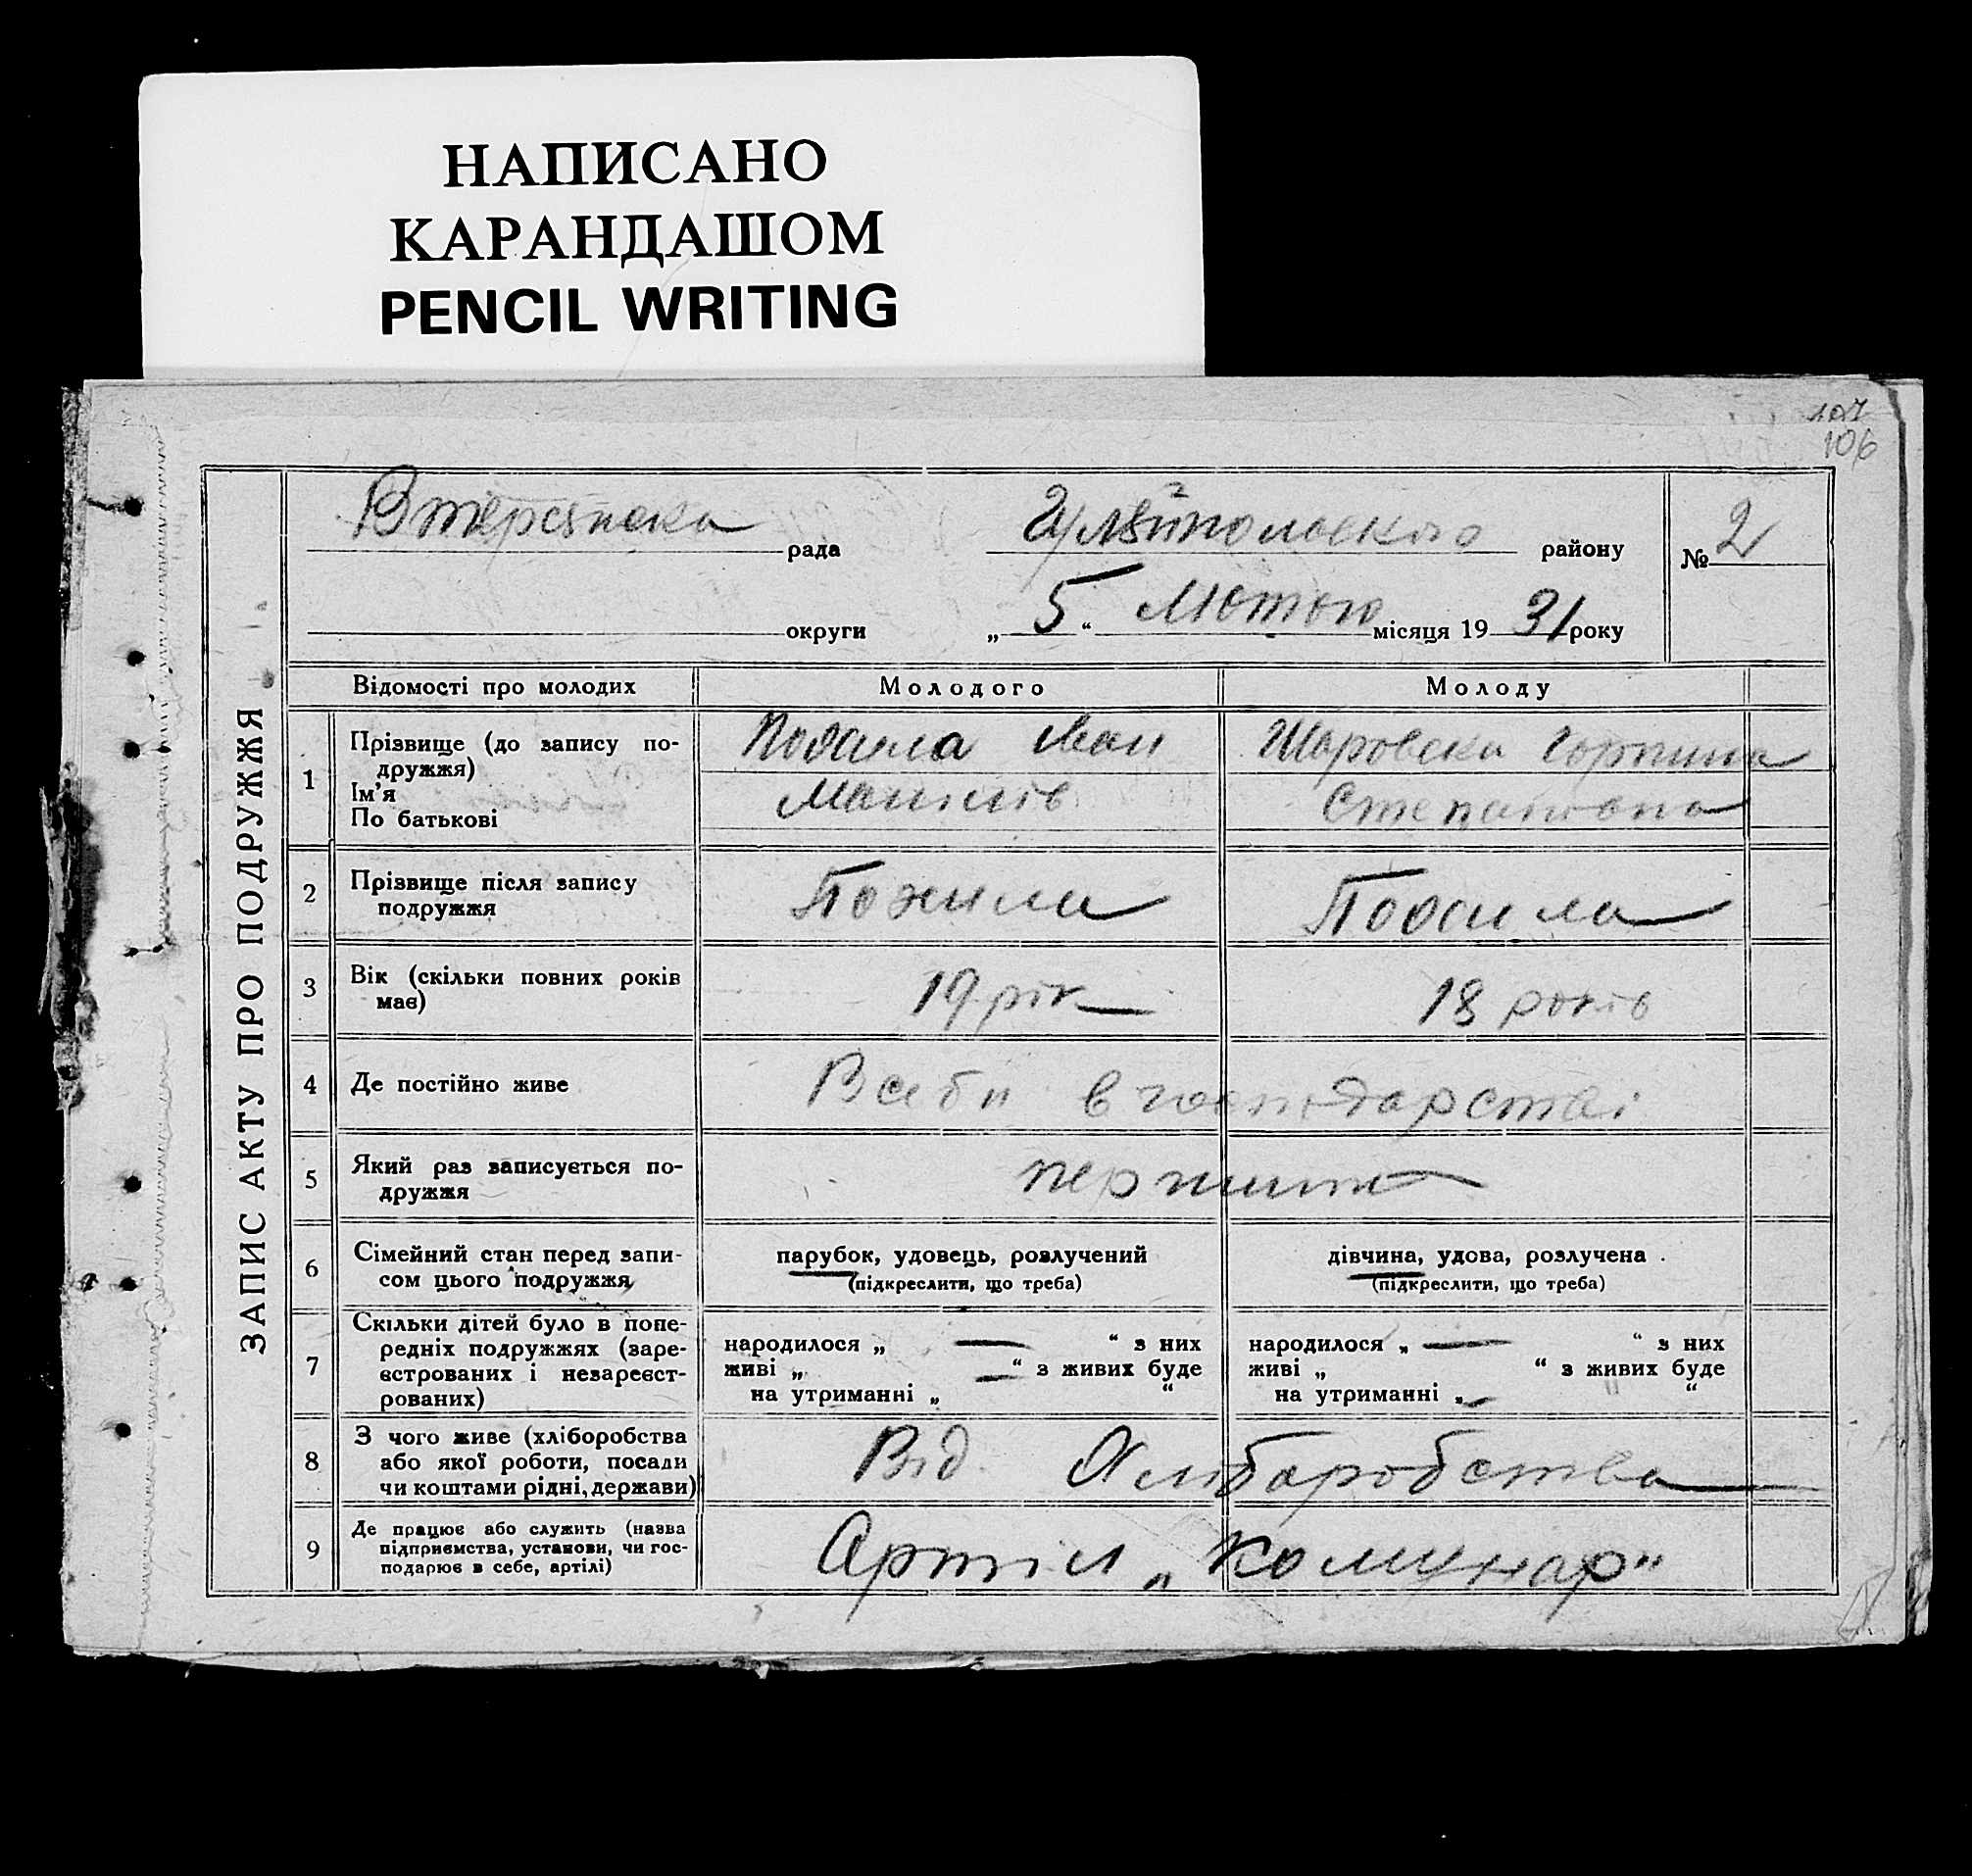 НАПИСАНО
КАРАНДАШОМ
PENCIL WRITING
107
106
ЗАПИС АКТУ ПРО ПОДРУЖЖЯ
рада
району
№ 2
округи „5“ Лютого місяця 1931 року
Відомості про молодих Молодого Молоду
1 Прізвище (до запису по-
дружжя)
Ім’я
По батькові
Іван
Шаровска Горпина
Степанівна
2 Прізвище після запису
подружжя
Пожила
3 Вік (скільки повних років
має)
19 рік 18 років
4 Де постійно живе
В себи в господарстві
5 Який раз записується по-
дружжя
6 Сімейний стан перед запи-
сом цього подружжя
парубок, удовець, розлучений
(підкреслити, що треба)
дівчина, удова, розлучена
(підкреслити, що треба)
7 Скільки дітей було в попе-
редніх подружжях (заре-
єстрованих і незареєст-
рованих)
народилося „ — “ з них
живі „ — “ з живих буде
на утриманні „ “
народилося „ — “ з них
живі „ “ з живих буде
на утриманні „ — “
8 З чого живе (хліборобства
або якої роботи, посади
чи коштами рідні, держави)
Від Хліборобства
9 Де працює або служить (назва
підприємства, установи, чи гос-
подарює в себе, артілі)
Артіл „Комунар“